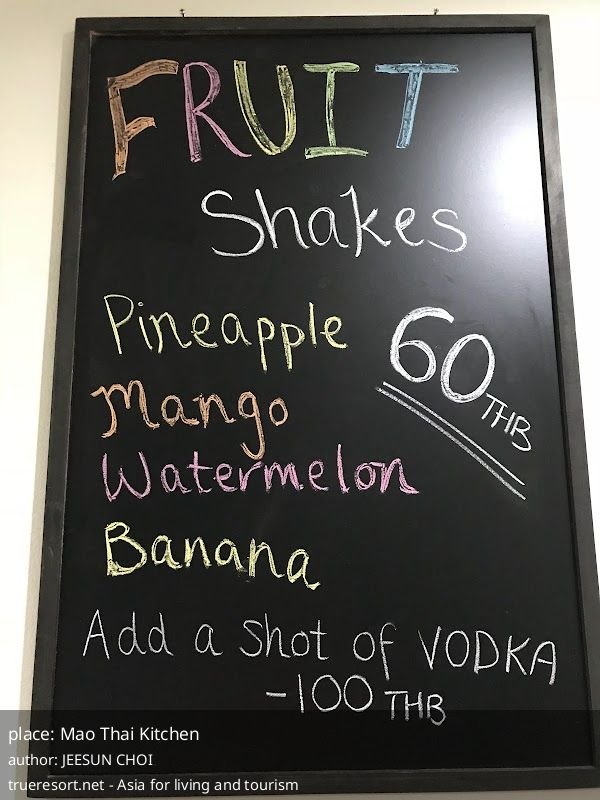 FRUIT
Shakes
Pineapple
60 THB
Mango
Watermelon
Banana
Add a Shot of VODKA
-100 THB
place: Mao Thai Kitchen
author: JEESUN CHOI
trueresort.net - Asia for living and tourism